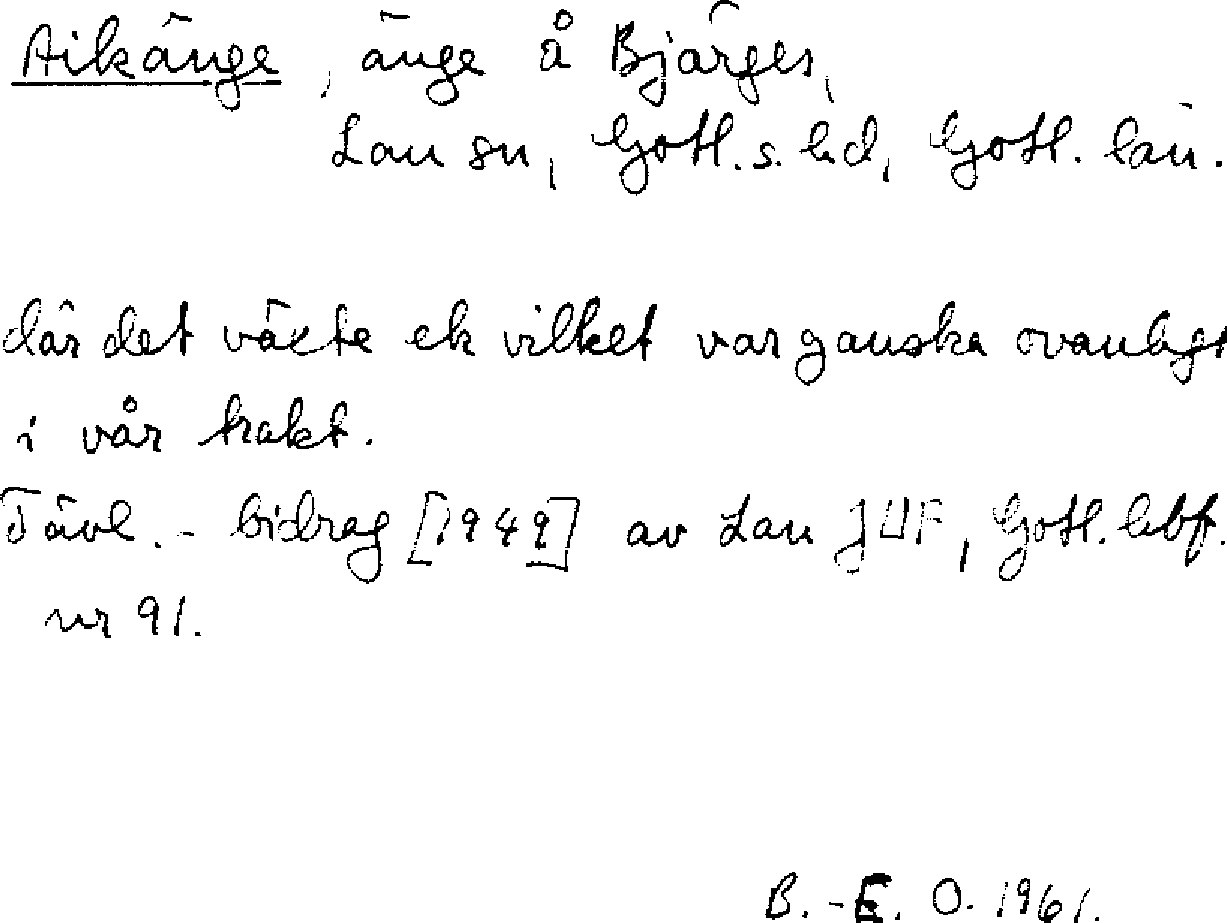 Aikänge, änge å Bjärges,
Lau sn, Gotl. s. hd, Gotl. län.
där det växte ek vilket var ganska ovanligt
i vår trakt.
Tävl.-bidrag [1949] av Lau JUF, Gotl. hbf.
nr 91.
B.-E. O. 1961.